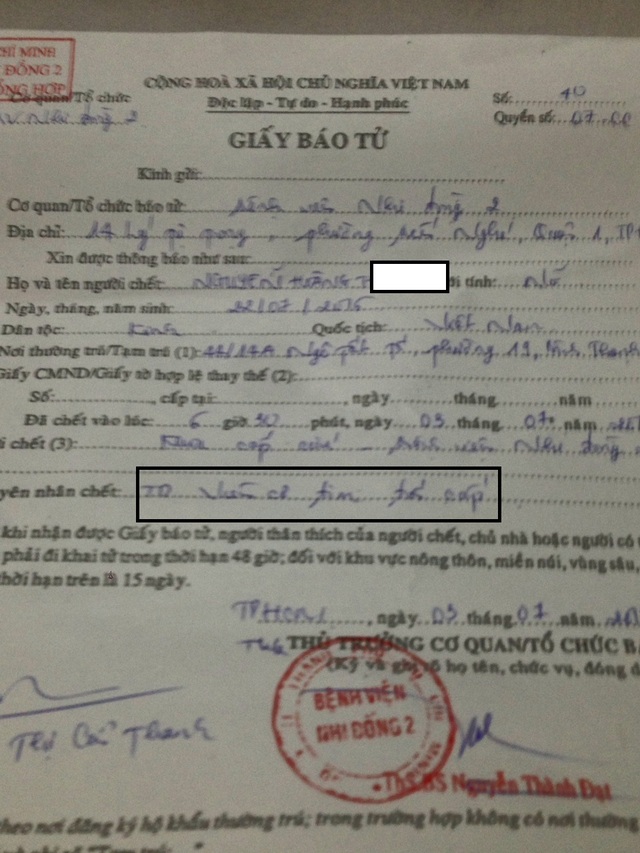 HÍ MINH
ĐỒNG 2
ỔNG HỢP
Cơ quan/Tổ chức
Nhi đồng 2
CỘNG HOÀ XÃ HỘI CHỦ NGHĨA VIỆT NAM
Độc lập - Tự do - Hạnh phúc
Số: 40
Quyển số: 07
GIẤY BÁO TỬ
Kính gửi:
Cơ quan/Tổ chức báo tử: Bệnh viện Nhi đồng 2
Địa chỉ: 14 Lý Tự Trọng, phường Bến Nghé, Quận 1, TP
Xin được thông báo như sau:
Họ và tên người chết: NGUYỄN HOÀNG ới tính: Nữ
Ngày, tháng, năm sinh: 22/07/2015
Dân tộc: Kinh Quốc tịch: Việt Nam
Nơi thường trú/Tạm trú (1): Ngô Tất Tố, phường 19, Bình Thạnh
Giấy CMND/Giấy tờ hợp lệ thay thế (2):
Số: , cấp tại: , ngày tháng năm
Đã chết vào lúc: 6 giờ 30 phút, ngày 03 tháng 07 năm
i chết (3): Khoa cấp cứu - Bệnh viện Nhi đồng
yên nhân chết: TD Viêm cơ tim tối cấp
khi nhận được Giấy báo tử, người thân thích của người chết, chủ nhà hoặc người có
phải đi khai tử trong thời hạn 48 giờ; đối với khu vực nông thôn, miền núi, vùng sâu,
thời hạn trên là 15 ngày.
TPHCM, ngày 03 tháng 07 năm
THỦ TRƯỞNG CƠ QUAN/TỔ CHỨC B
(Ký và ghi rõ họ tên, chức vụ, đóng d
BỆNH VIỆN
NHI ĐỒNG 2
Thị Thanh
ThS BS Nguyễn Thành Đạt
theo nơi đăng ký hộ khẩu thường trú; trong trường hợp không có nơi thường